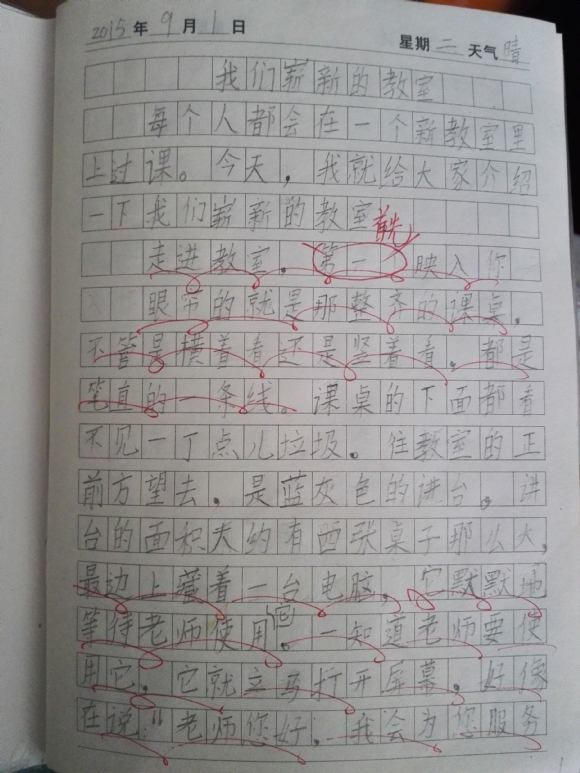 2015年9月1日 星期二 天气晴
我们崭新的教室
每个人都会在一个新教室里
上过课。今天，我就给大家介绍
一下我们崭新的教室
首先
走进教室。第一个映入你
眼帘的就是那整齐的课桌。
不管是横着看还是竖着看，都是
笔直的一条线。课桌的下面都看
不见一丁点儿垃圾。往教室的正
前方望去，是蓝灰色的讲台。讲
台的面积大约有四张桌子那么大，
最边上
着一台电脑，它默默地
等待老师使用它。一知道老师要使
用它，它就立马打开屏幕，好像
在说“老师您好，我会为您服务